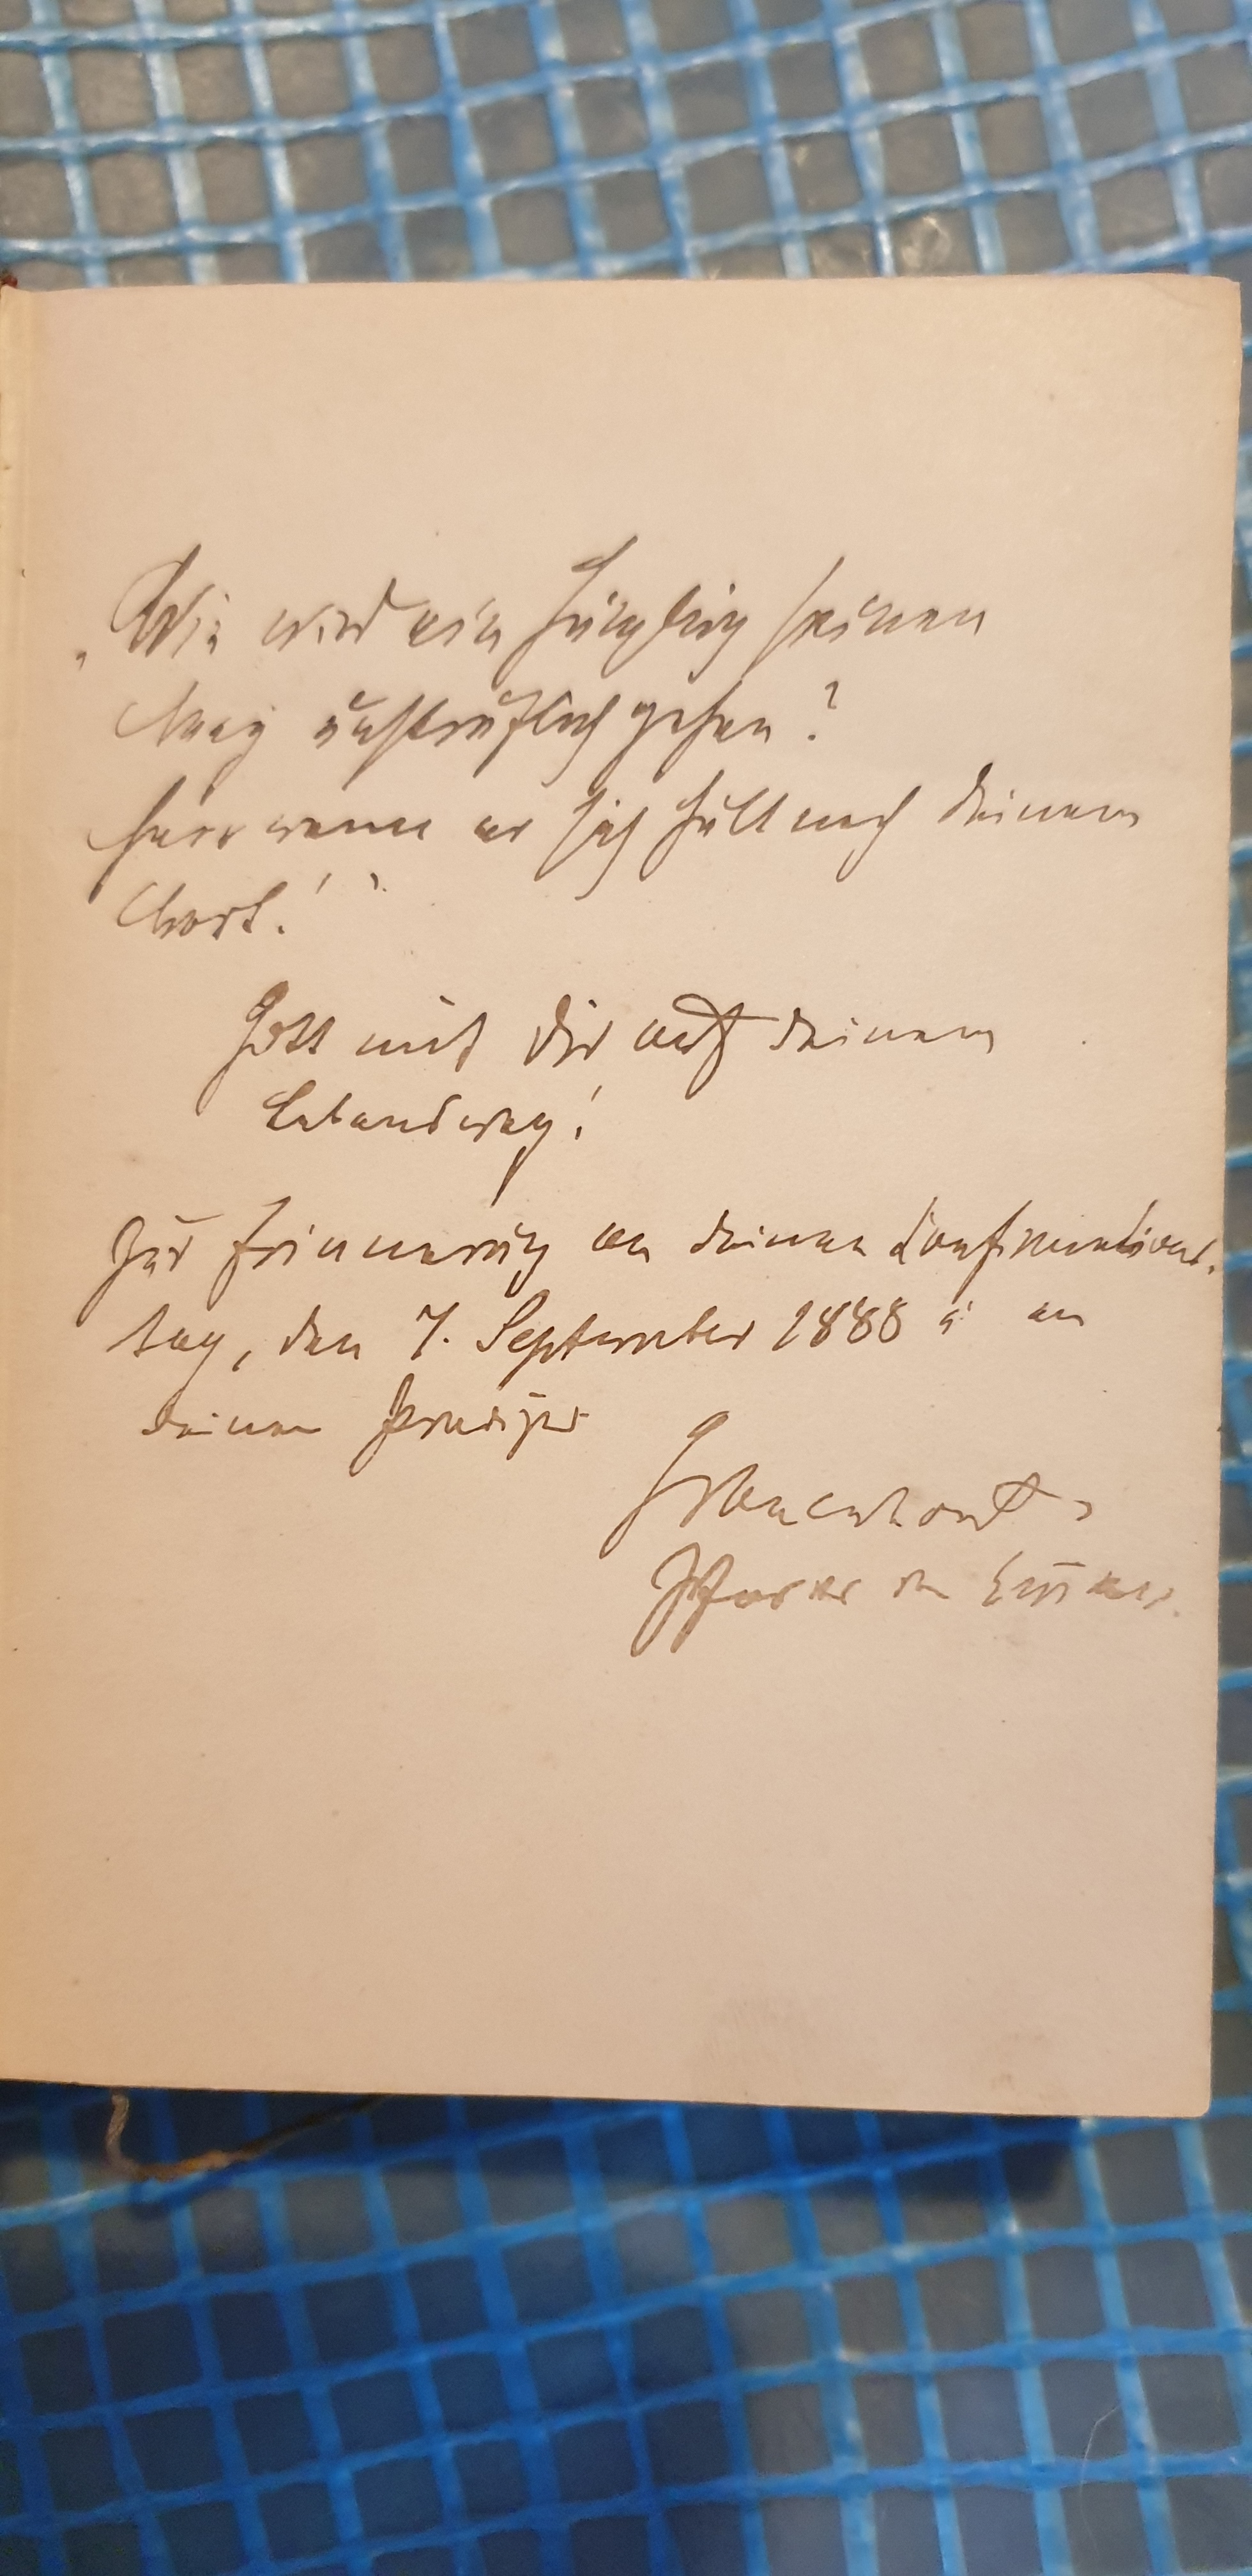 „Wie wird ein Jüngling seinen
Weg unsträflich gehen?
Herr wenn er sich hält nach deinem
Wort!"
Gott mit Dir auf deinem
Lebensweg!
Zur Erinnerung an deinen Confirmations-
tag, den 7. September 1888 u. an
deinen Prediger
Pfarrer in